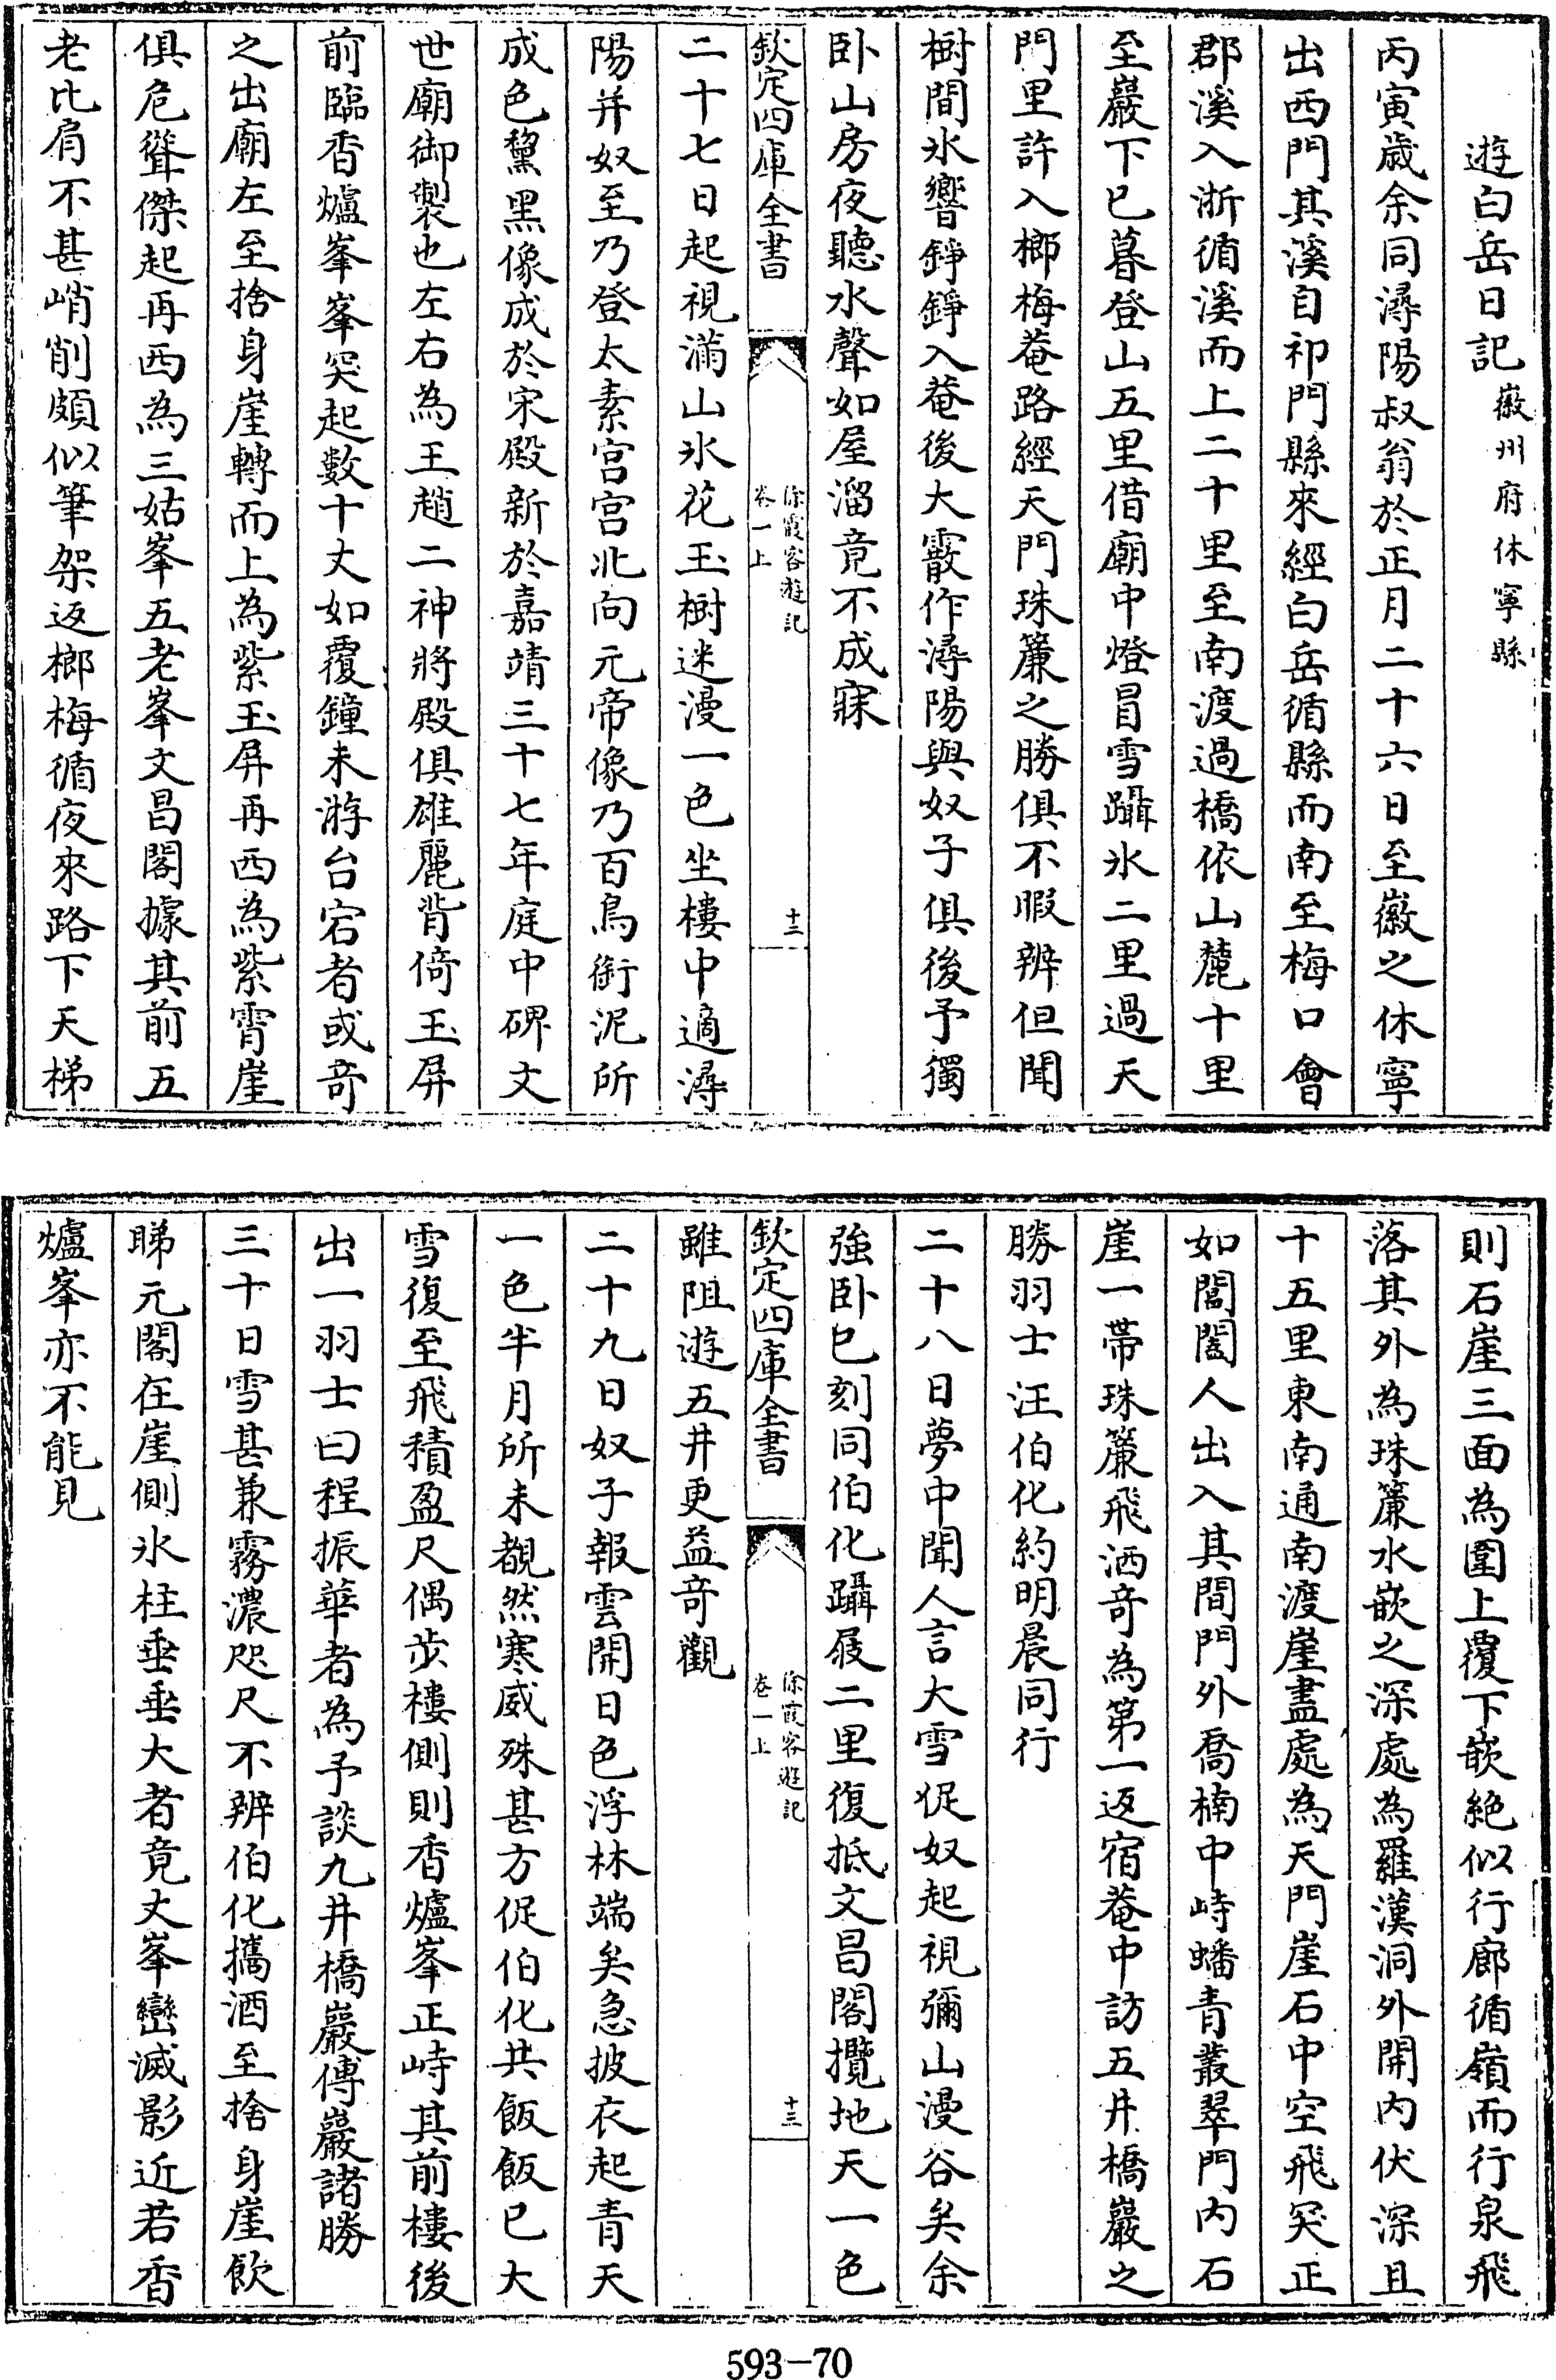 遊白岳日記徽州府休寧縣
丙寅歲余同潯陽叔翁於正月二十六日至徽之休寧
出西門其溪自祁門縣來經白岳循縣而南至梅口會
郡溪入浙循溪而上二十里至南渡過橋依山麓十里
至巖下已暮登山五里借廟中燈冒雪躡氷二里過天
門里許入榔梅菴路經天門珠簾之勝俱不暇辨但聞
樹間氷響錚錚入菴後大霰作潯陽與奴子俱後予獨
卧山房夜聽水聲如屋溜竟不成寐
欽定四庫全書
徐霞客遊記
卷一上
十二
二十七日起視滿山氷花玉樹迷漫一色坐樓中適潯
陽并奴至乃登太素宫宫北向元帝像乃百鳥銜泥所
成色黧黑像成於宋殿新於嘉靖三十七年庭中碑文
世廟御製也左右為王趙二神將殿俱雄麗背倚玉屏
前臨香爐峯峯突起數十丈如覆鐘未游台宕者或奇
之出廟左至捨身崖轉而上為紫玉屏再西為紫霄崖
俱危聳傑起再西為三姑峯五老峯文昌閣據其前五
老比肩不甚峭削頗似筆架返榔梅循夜來路下天梯
則石崖三面為圍上覆下嵌絶似行廊循嶺而行泉飛
落其外為珠簾水嵌之深處為羅漢洞外開内伏深且
十五里東南通南渡崖盡處為天門崖石中空飛突正
如閶闔人出入其間門外喬楠中峙蟠青叢翠門内石
崖一帶珠簾飛洒奇為第一返宿菴中訪五井橋巖之
勝羽士汪伯化約明晨同行
二十八日夢中聞人言大雪促奴起視彌山漫谷矣余
強卧已刻同伯化躡屐二里復抵文昌閣攬地天一色
欽定四庫全書
徐霞客遊記
卷一上
十三
雖阻遊五井更益奇觀
二十九日奴子報雲開日色浮林端矣急披衣起青天
一色半月所未覩然寒威殊甚方促伯化共飯飯已大
雪復至飛積盈尺偶步樓側則香爐峯正峙其前樓後
出一羽士曰程振華者為予談九井橋巖傅巖諸勝
三十日雪甚兼霧濃咫尺不辨伯化攜酒至捨身崖飲
睇元閣在崖側氷柱垂垂大者竟丈峯巒滅影近若香
爐峯亦不能見
593-70